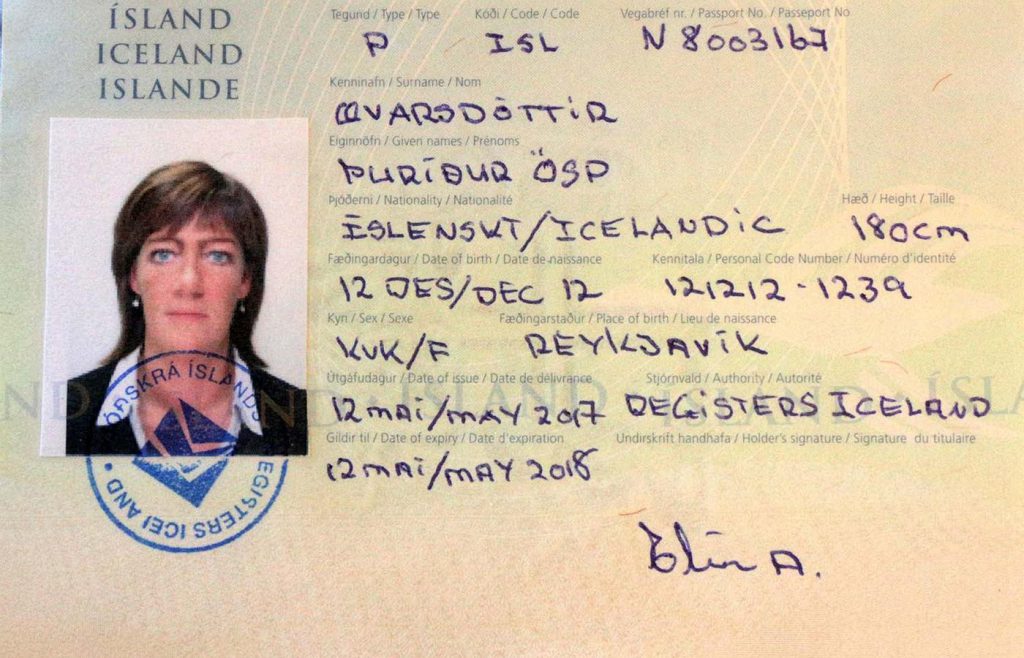 ÍSLAND
ICELAND
ISLANDE
Tegund / Type / Type Kóði / Code / Code Vegabréf nr. / Passport No. / Passeport No
P ISL N 8003167
Kenninafn / Surname / Nom
ÆVARSDÓTTIR
Eiginnöfn / Given names / Prénoms
ÞURÍÐUR ÖSP
Þjóðerni / Nationality / Nationalité Hæð / Height / Taille
ÍSLENSKT/ICELANDIC 180cm
Fæðingardagur / Date of birth / Date de naissance Kennitala / Personal Code Number / Numéro d'identité
12 DES/DEC 12 121212-1239
Kyn / Sex / Sexe Fæðingarstaður / Place of birth / Lieu de naissance
KVK/F REYKJAVÍK
Útgáfudagur / Date of issue / Date de délivrance Stjórnvald / Authority / Autorité
12 MAÍ/MAY 2017 REGISTERS ICELAND
Gildir til / Date of expiry / Date d'expiration Undirskrift handhafa / Holder's signature / Signature du titulaire
12 MAÍ/MAY 2018
Elín A.
ÓÐSKRÁ ÍSLANDS
REGISTERS ICELAND
ND · ÍSLAND · ÍSLAND · ÍSLA